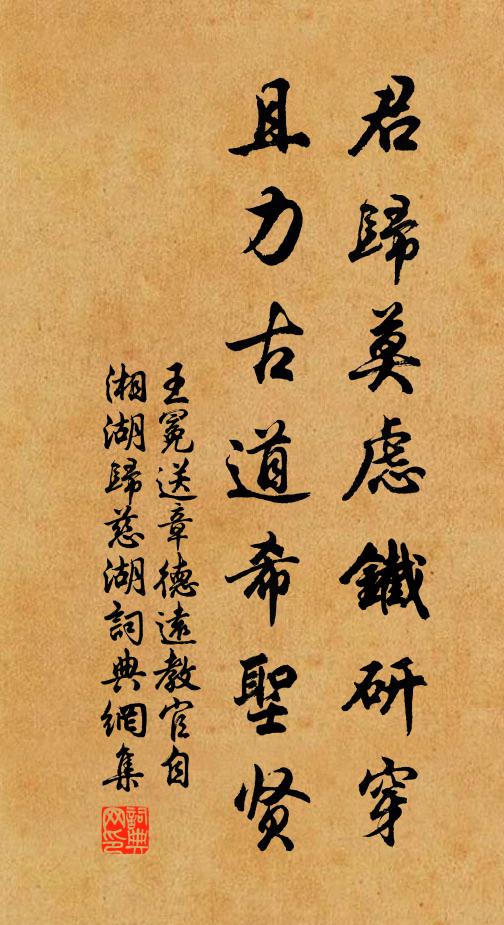 君歸莫慮鐵研穿
且力古道希聖贤
王冕送章德遠教官自
湘湖歸慈湖詞典網集
詞典网印